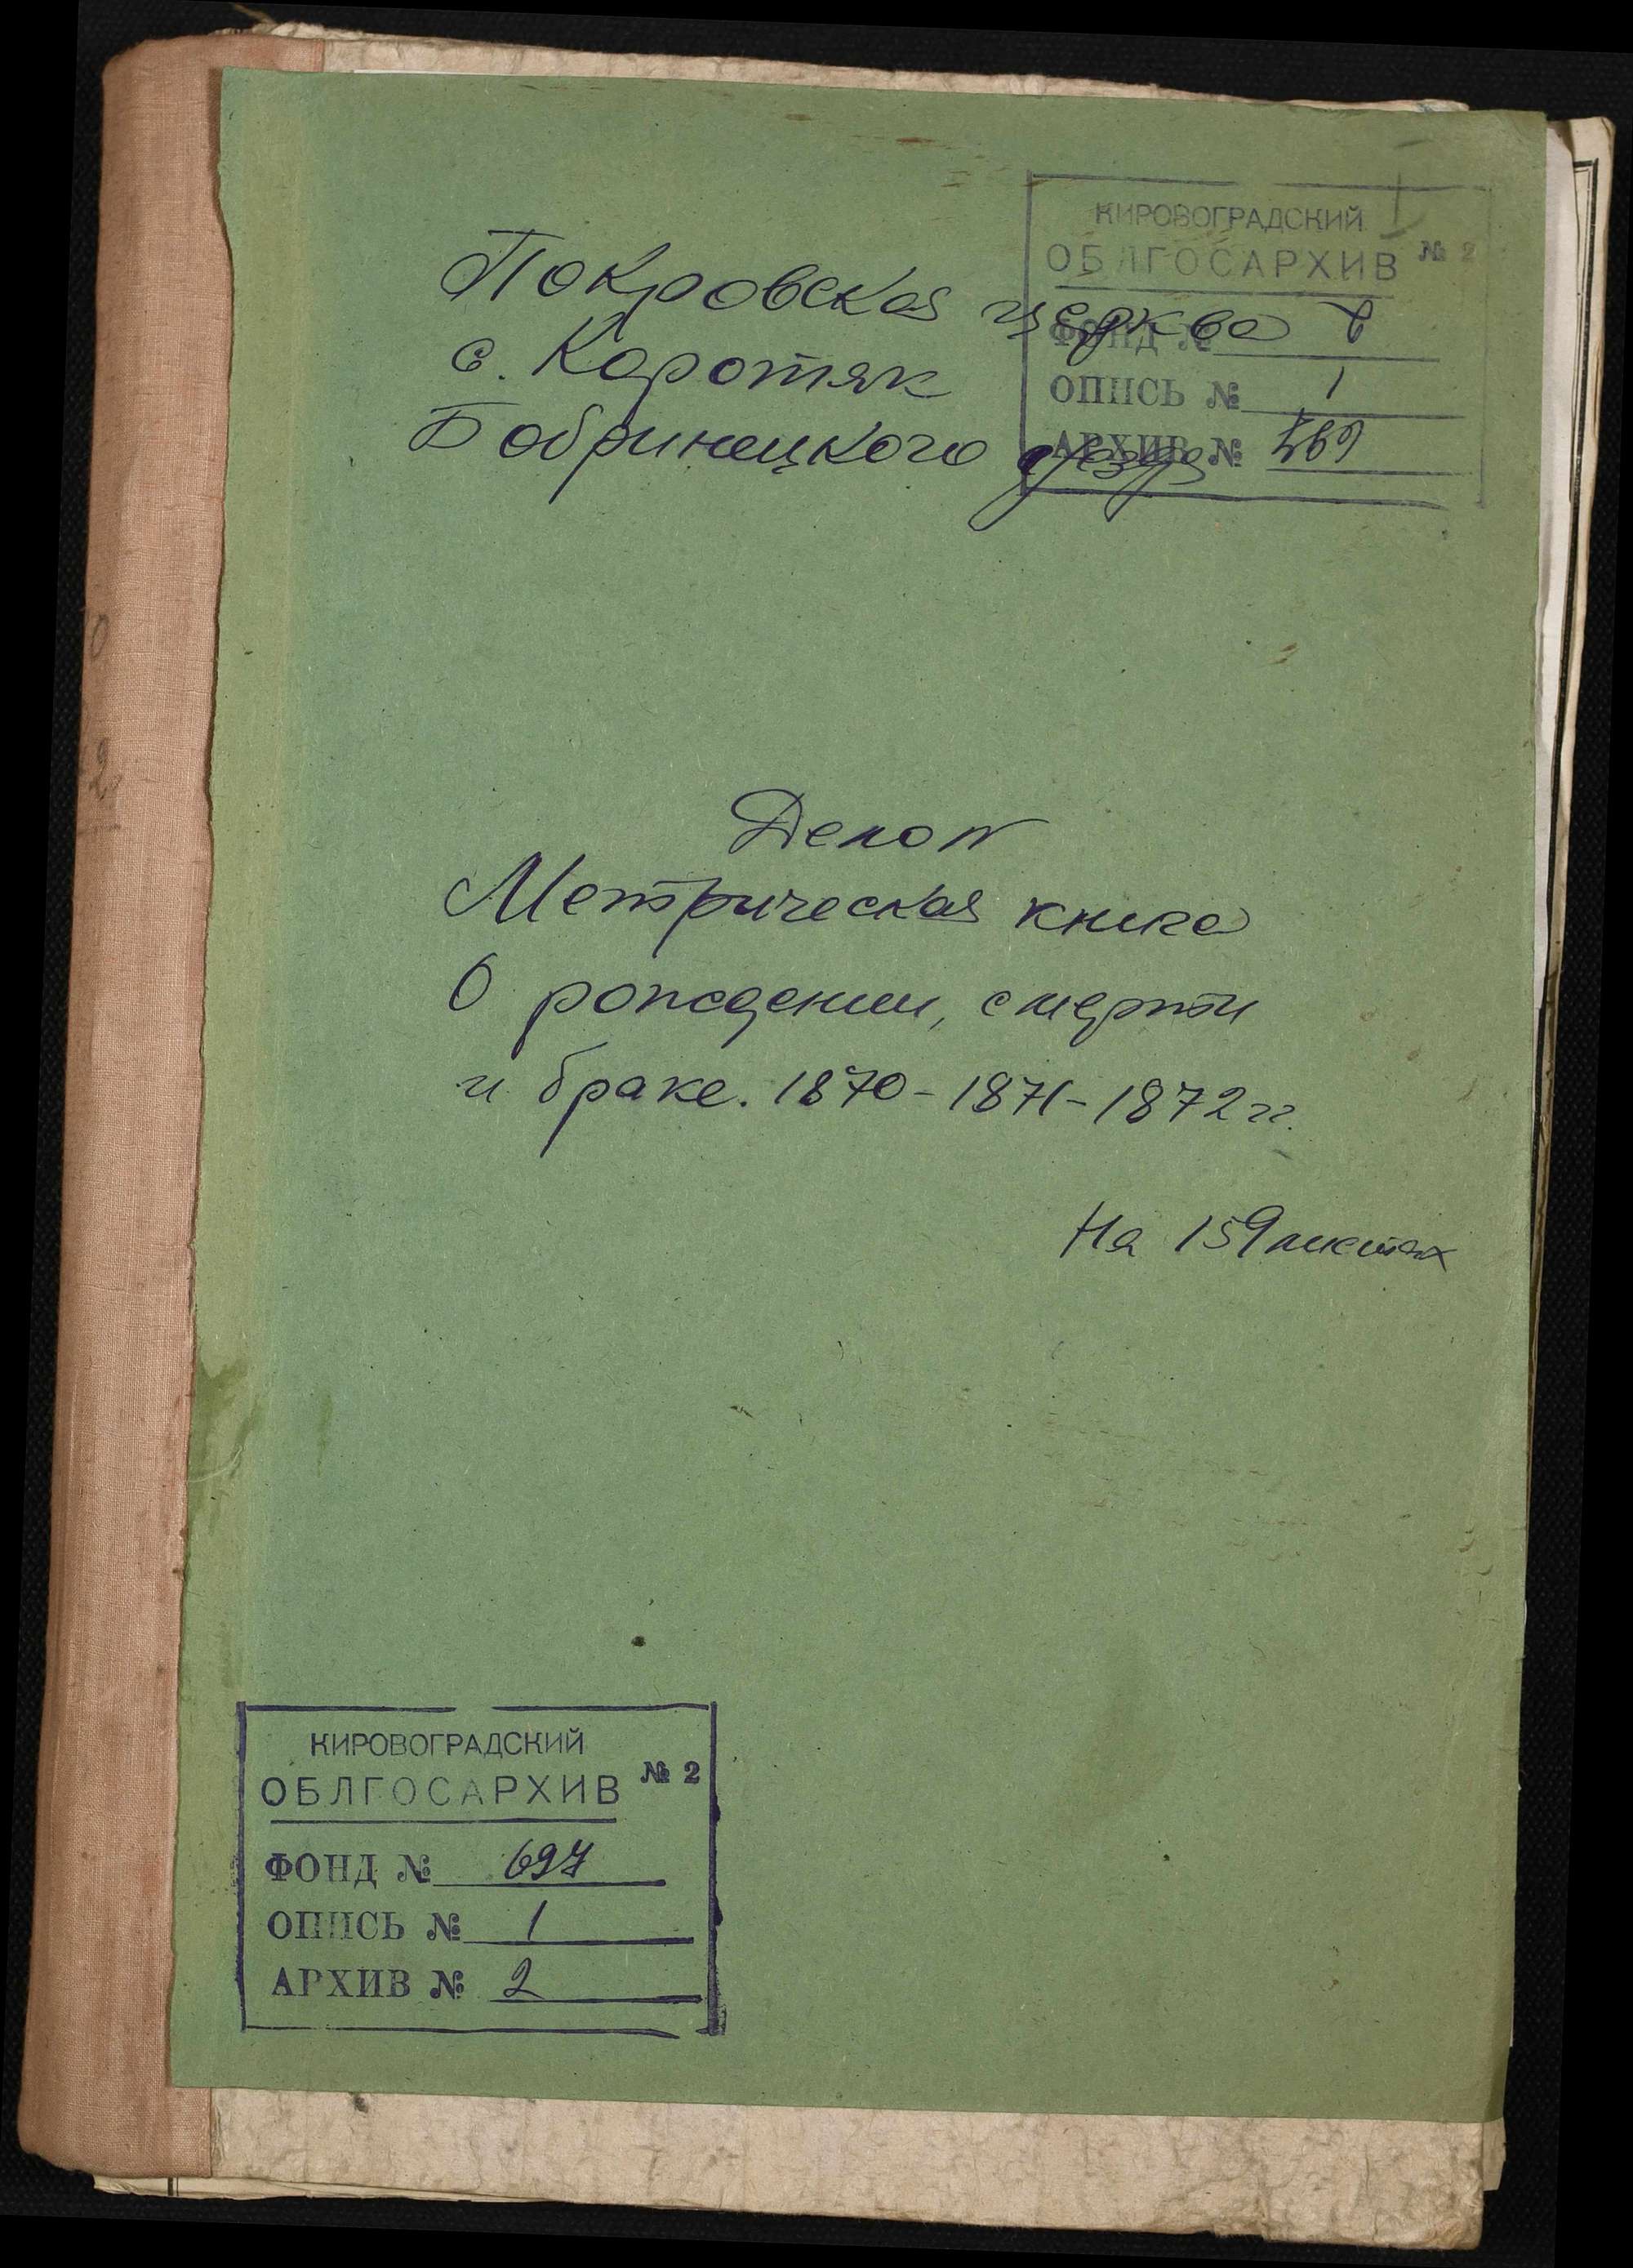 КИРОВОГРАДСКИЙ
ОБЛГОСАРХИВ № 2
ФОНД №
ОПИСЬ № 1
АРХИВ №
Покровская церква
с. Коротяк
Бобринецкого уезда
Дело №
Метрическая книга
О рождении, смерти
и браке. 1870-1871-1872 гг.
На 159 листах
КИРОВОГРАДСКИЙ
ОБЛГОСАРХИВ № 2
ФОНД № 697
ОПИСЬ № 1
АРХИВ № 2